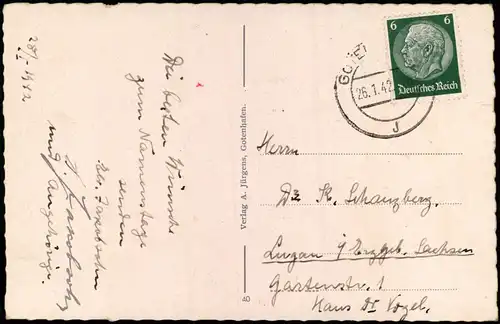 28/I. 1942
Die besten Wünsche
zum Namenstage
senden
und Angehörige.
Verlag A. Jürgens, Gotenhafen.
40
6 6
Deutsches Reich
GOTE
26.1.42
J
Herrn
Dr K. Schanzberg
Lugau i/Erzgeb. Sachsen
Gartenstr. 1
Haus Dr Vogel.